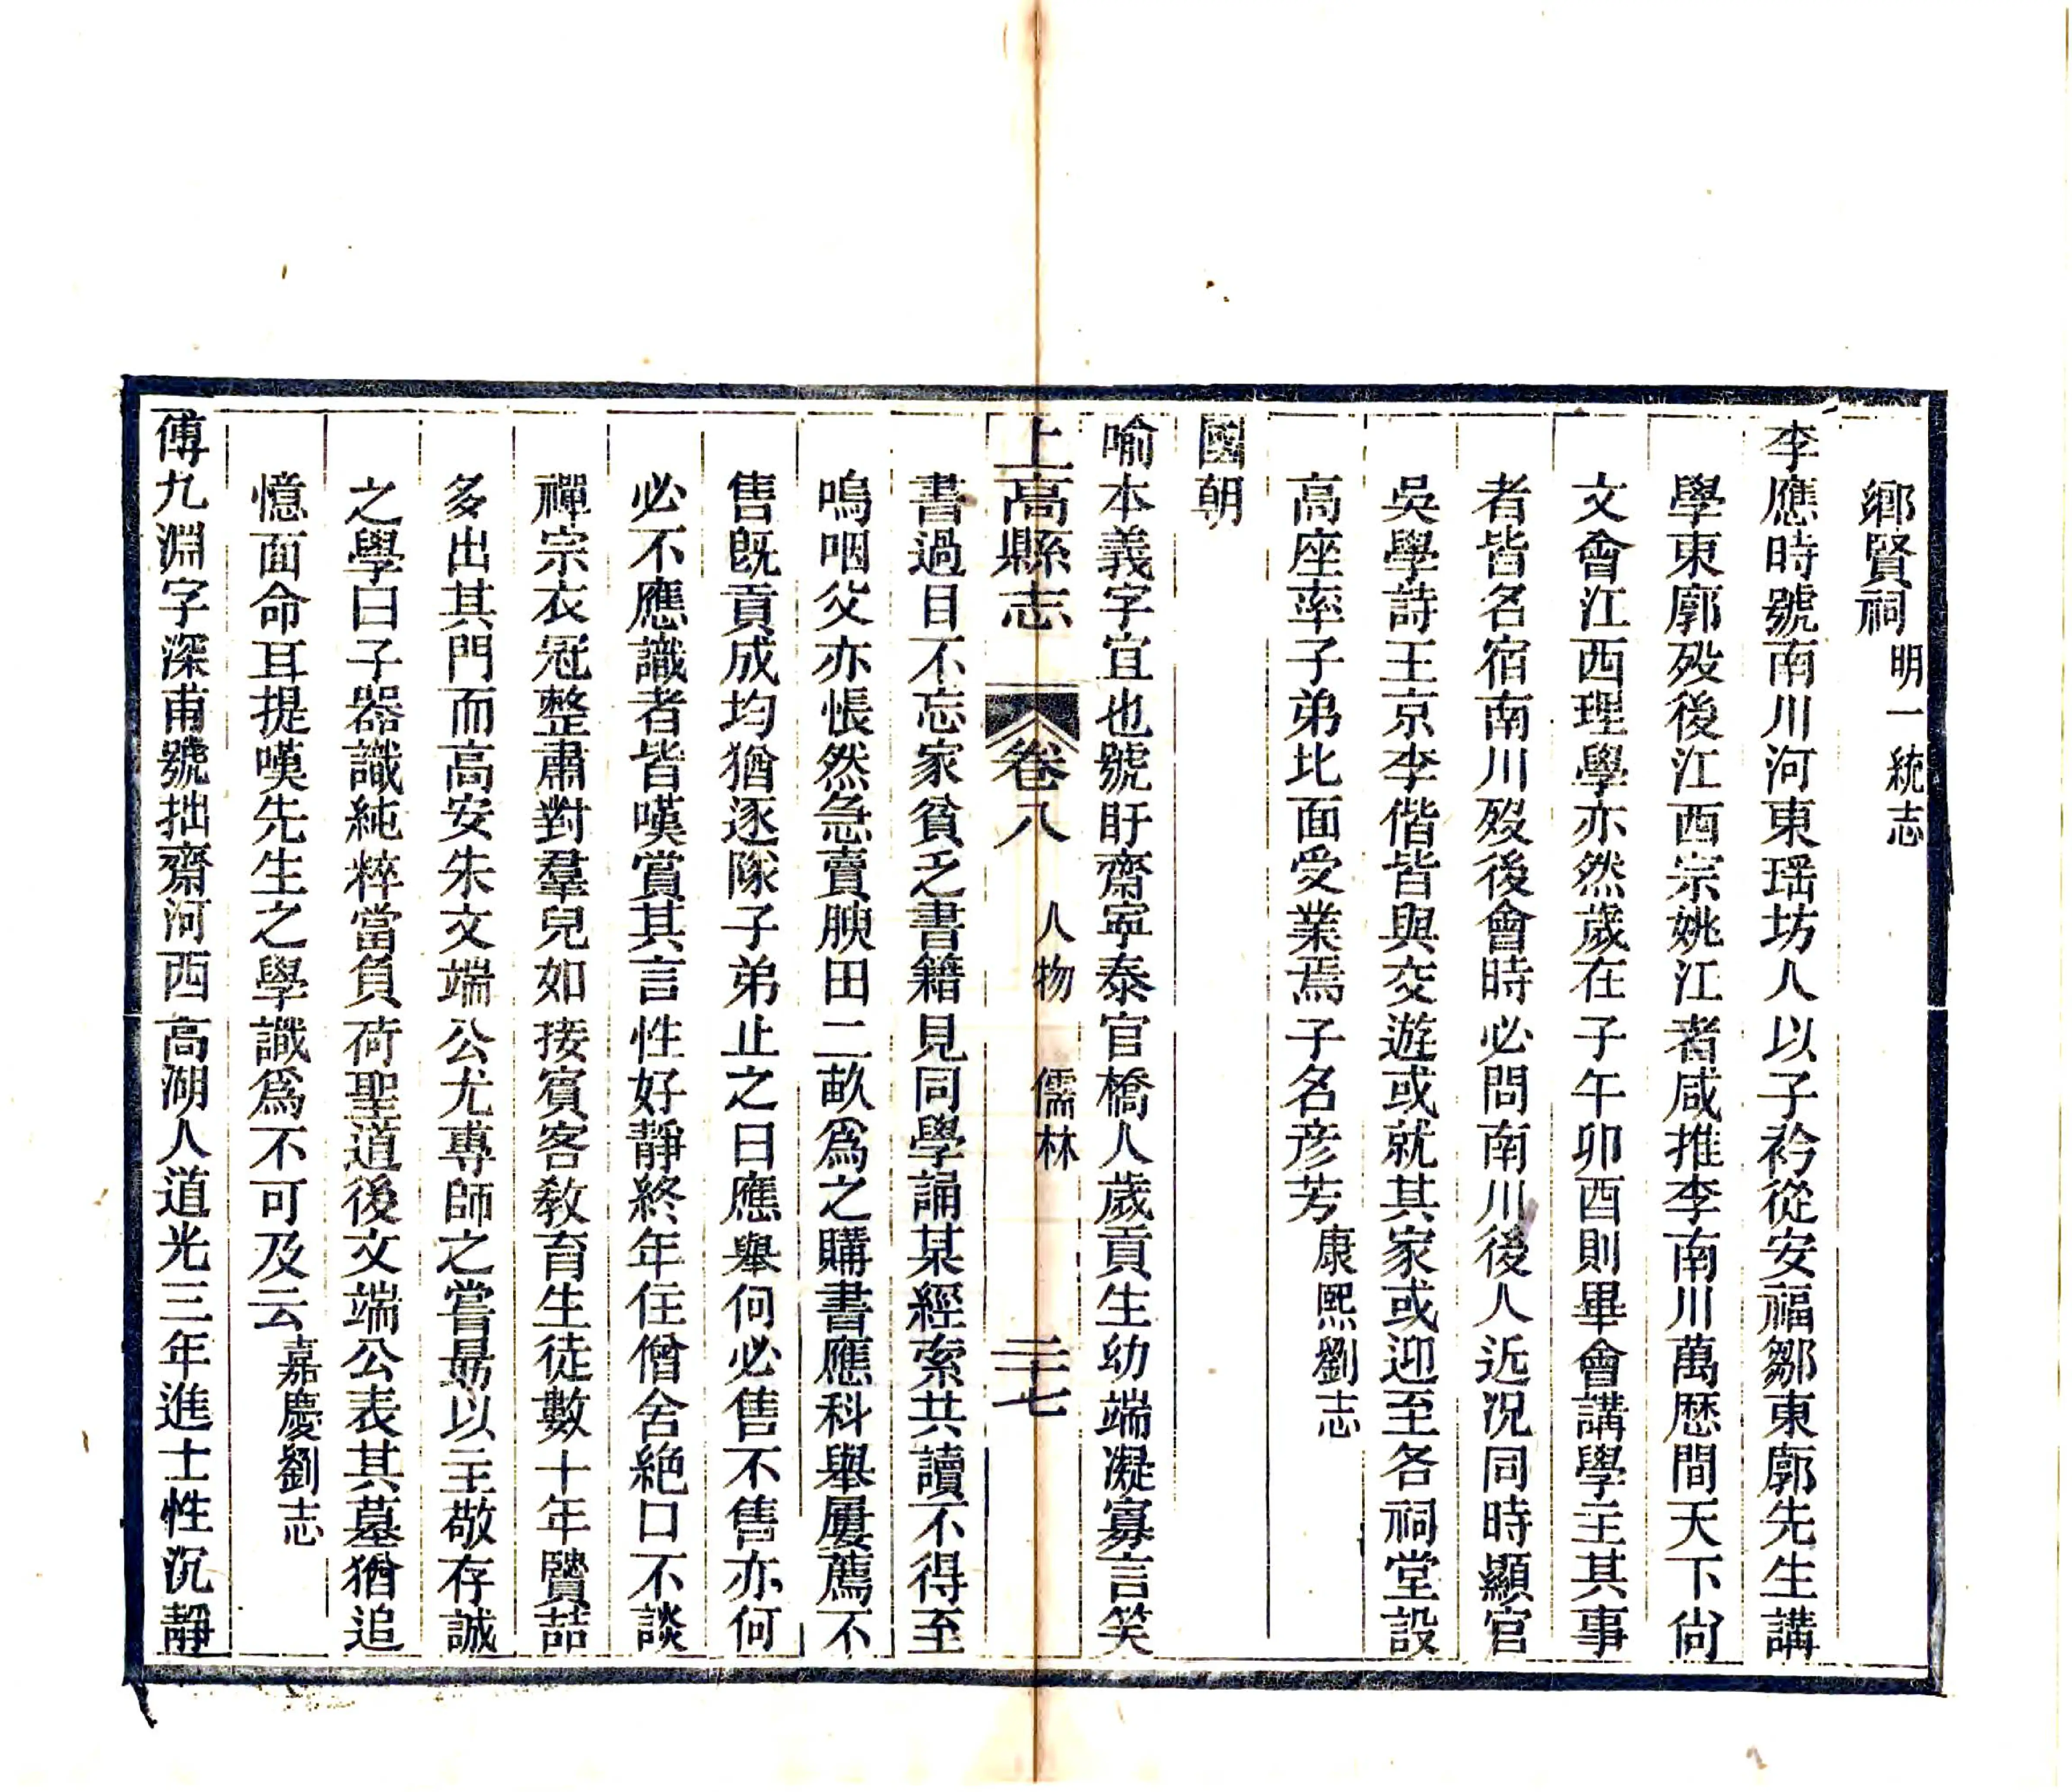 鄉賢祠明一統志
李應時號南川河東瑶坊人以子衿從安福鄒東廓先生講
學東廓歿後江西宗姚江者咸推李南川萬歷間天下尙
文會江西理學亦然歲在子午卯酉則畢會講學主其事
者皆名宿南川歿後會時必問南川後人近况同時顯官
吳學詩王京李偕皆與交遊或就其家或迎至各祠堂設
高座率子弟北面受業焉子名彦芳康熙劉志
國朝
喻本義字宜也號盱齋寧泰官橋人歲貢生幼端凝寡言笑
上高縣志 卷八 人物 儒林 二十七
書過目不忘家貧乏書籍見同學誦某經索共讀不得至
嗚咽父亦悵然急賣腴田二畝爲之購書應科舉屢薦不
售旣貢成均猶逐隊子弟止之曰應舉何必售不售亦何
必不應識者皆嘆賞其言性好靜終年住僧舍絶口不談
禪宗衣冠整肅對羣兒如接賓客敎育生徒數十年贒喆
多出其門而高安朱文端公尤專師之嘗勗以主敬存誠
之學曰子器識純粹當負荷聖道後文端公表其墓猶追
憶面命耳提嘆先生之學識爲不可及云嘉慶劉志
傅九淵字深甫號拙齋河西高湖人道光三年進士性沉靜